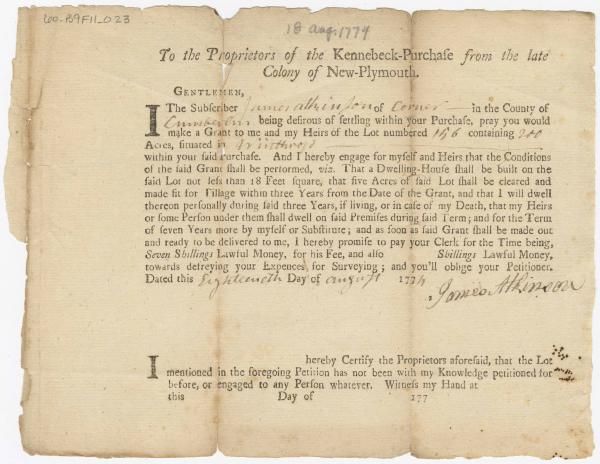 60.B9F11_023
18 Aug. 1774
To the Proprietors of the Kennebeck-Purchaſe from the late
Colony of New-Plymouth.
GENTLEMEN,
I The Subſcriber James Atkinson of Corner in the County of
Cumberlin being deſirous of ſettling within your Purchaſe, pray you would
make a Grant to me and my Heirs of the Lot numbered 156 containing 200
Acres, ſituated in Winthrop
within your ſaid Purchaſe. And I hereby engage for myſelf and Heirs that the Conditions
of the ſaid Grant ſhall be performed, viz. That a Dwelling-Houſe ſhall be built on the
ſaid Lot not leſs than 18 Feet ſquare, that five Acres of ſaid Lot ſhall be cleared and
made fit for Tillage within three Years from the Date of the Grant, and that I will dwell
thereon perſonally during ſaid three Years, if living, or in caſe of my Death, that my Heirs
or ſome Perſon under them ſhall dwell on ſaid Premiſes during ſaid Term; and for the Term
of ſeven Years more by myſelf or Subſtitute; and as ſoon as ſaid Grant ſhall be made out
and ready to be delivered to me, I hereby promiſe to pay your Clerk for the Time being,
Seven Shillings Lawful Money, for his Fee, and alſo Shillings Lawful Money,
towards defreying your Expences for Surveying; and you'll oblige your Petitioner.
Dated this Eighteenth Day of august 1774
James Atkinson
I hereby Certify the Proprietors aforeſaid, that the Lot
mentioned in the foregoing Petition has not been with my Knowledge petitioned for
before, or engaged to any Perſon whatever. Witneſs my Hand at
this Day of 177